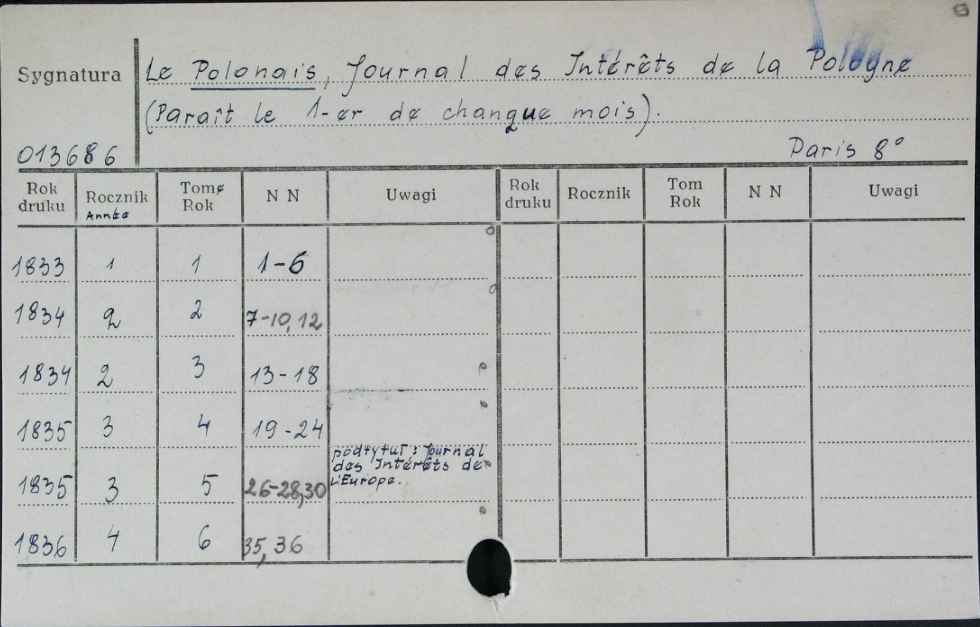 Sygnatura
Le Polonais, Journal des Intérêts de la Pologne
(Paraît le 1-er de changue mois).
013686
Paris 8°
Rok druku Rocznik Année Tome Rok N N Uwagi Rok druku Rocznik Tom Rok N N Uwagi
1833 1 1 1-6
1834 2 2 7-10, 12
1834 2 3 13-18
1835 3 4 19-24
podtytuł: Journal
des Intérêts de
L'Europe.
1835 3 5 26-28,30
1836 4 6 35, 36